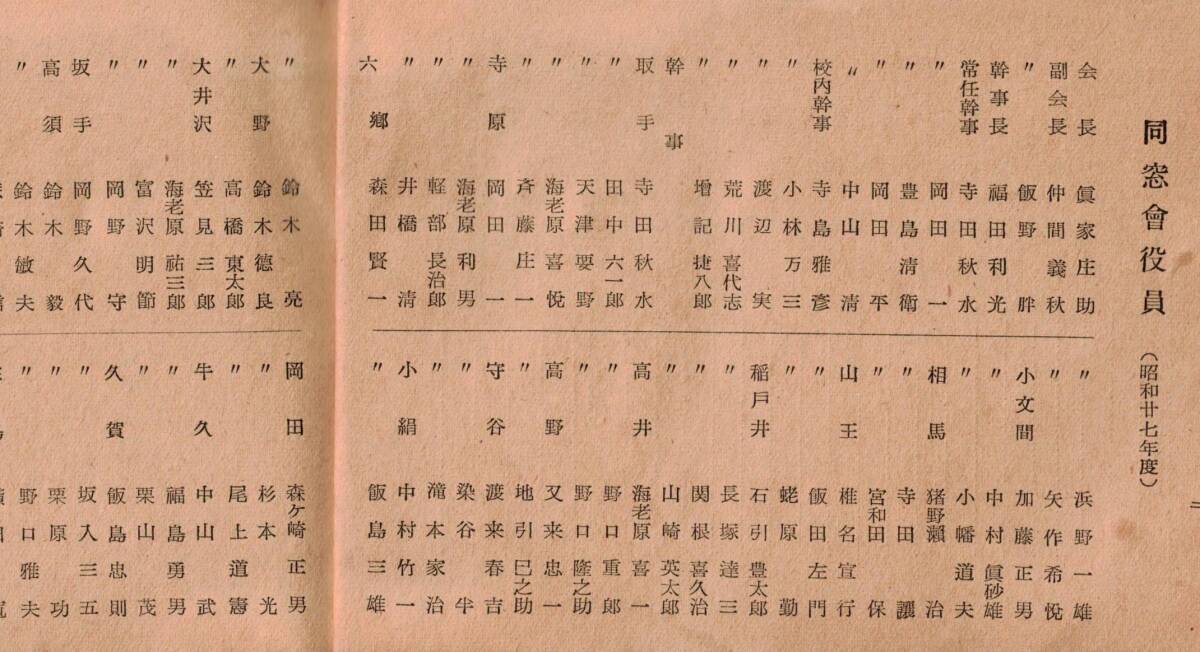 同窓會役員 (昭和廿七年度)
会長 眞家庄助
副会長 仲間義秋
〃 飯野胖
幹事長 福田利光
常任幹事 寺田秋水
〃 岡田一
〃 豊島清衛
〃 岡田平
〃 中山清
校内幹事 寺島雅彦
〃 小林万三
〃 渡辺実
〃 荒川喜代志
〃 増記捷八郎
幹事
取手 寺田秋水
〃 田中六一郎
〃 天津要野
〃 海老原喜悦
〃 斉藤庄一
寺原 岡田一
〃 海老原利男
〃 軽部長治郎
〃 井橋清
六郷 森田賢一
〃 鈴木亮
大野 鈴木徳良
〃 高橋東太郎
大井沢 笠見三郎
〃 海老原祐三郎
〃 富沢明節
〃 岡野守
坂手 岡野久代
高須 鈴木毅
〃 鈴木敏夫
〃 浜野一雄
〃 矢作希悦
小文間 加藤正男
〃 中村眞砂雄
〃 小幡道夫
相馬 猪野瀬治
〃 寺田讓
〃 宮和田保
山王 椎名宣行
〃 飯田左門
〃 蛯原勤
稲戸井 石引豊太郎
〃 長塚達三
〃 関根喜久治
〃 山崎英太郎
高井 海老原喜一
〃 野口重郎
〃 野口隆之助
高野 又来忠一
〃 地引巳之助
守谷 渡来春吉
〃 染谷半
〃 滝本家治
小絹 中村竹一
〃 飯島三雄
岡田 森ケ崎正男
〃 杉本光
〃 尾上道憲
牛久 中山武
〃 福島勇男
〃 栗山茂
久賀 飯島忠則
〃 坂入三五
〃 栗原功
〃 野口雅夫
二